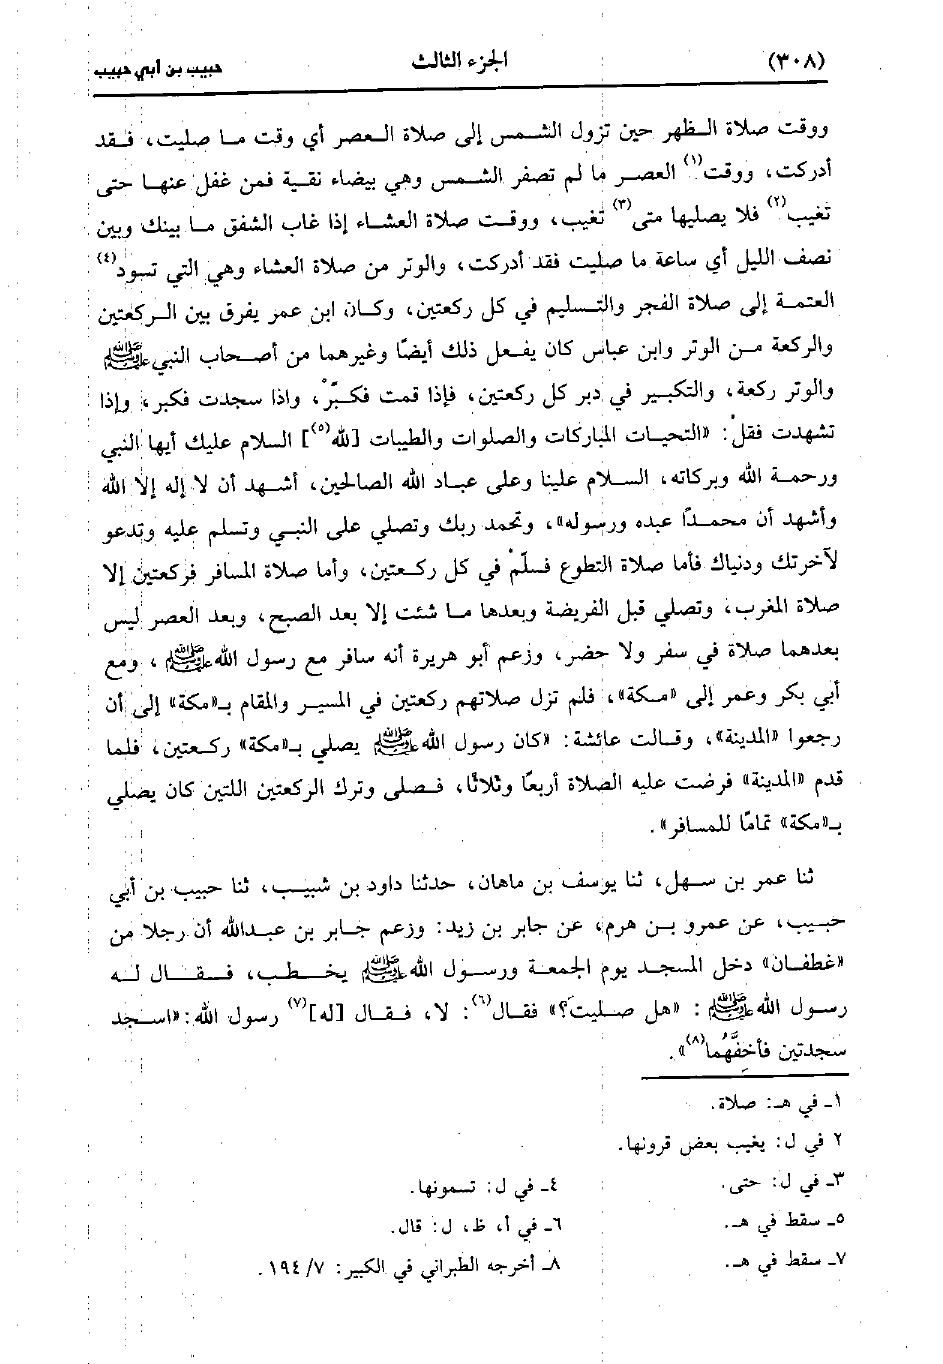 (٣٠٨) الجزء الثالث حبيب بن أبي حبيب
ووقت صلاة الظهر حين تزول الشمس إلى صلاة العصر أي وقت ما صليت، فقد
أدركت، ووقت(١) العصر ما لم تصفر الشمس وهي بيضاء نقية فمن غفل عنها حتى
تغيب(٢) فلا يصليها متى(٣) تغيب، ووقت صلاة العشاء إذا غاب الشفق ما بينك وبين
نصف الليل أي ساعة ما صليت فقد أدركت، والوتر من صلاة العشاء وهي التي تسود(٤)
العتمة إلى صلاة الفجر والتسليم في كل ركعتين، وكان ابن عمر يفرق بين الركعتين
والركعة من الوتر وابن عباس كان يفعل ذلك أيضًا وغيرهما من أصحاب النبي ﷺ
والوتر ركعة، والتكبير في دبر كل ركعتين، فإذا قمت فكبّرْ، واذا سجدت فكبر، وإذا
تشهدت فقلْ: «التحيات المباركات والصلوات والطيبات [لله(٥)] السلام عليك أيها النبي
ورحمة الله وبركاته، السلام علينا وعلى عباد الله الصالحين، أشهد أن لا إله إلا الله
وأشهد أن محمدًا عبده ورسوله»، وتحمد ربك وتصلي على النبي وتسلم عليه وتدعو
لآخرتك ودنياك فأما صلاة التطوع فسلّمْ في كل ركعتين، وأما صلاة المسافر فركعتين إلا
صلاة المغرب، وتصلي قبل الفريضة وبعدها ما شئت إلا بعد الصبح، وبعد العصر ليس
بعدهما صلاة في سفر ولا حضر، وزعم أبو هريرة أنه سافر مع رسول الله ﷺ، ومع
أبي بكر وعمر إلى «مكة»، فلم تزل صلاتهم ركعتين في المسير والمقام بـ«مكة» إلى أن
رجعوا «المدينة»، وقالت عائشة: «كان رسول الله ﷺ يصلي بـ«مكة» ركعتين، فلما
قدم «المدينة» فرضت عليه الصلاة أربعًا وثلاثًا، فصلى وترك الركعتين اللتين كان يصلي
بـ«مكة» تمامًا للمسافر».
ثنا عمر بن سهل، ثنا يوسف بن ماهان، حدثنا داود بن شبيب، ثنا حبيب بن أبي
حبيب، عن عمرو بن هرم، عن جابر بن زيد: وزعم جابر بن عبدالله أن رجلا من
«غطفان» دخل المسجد يوم الجمعة ورسول الله ﷺ يخطب، فقال له
رسول الله ﷺ: «هل صليتَ؟» فقال(٦): لا، فقال [له](٧) رسول الله: «اسجد
سجدتين فأخِفَّهُما(٨)».
١ـ في هـ: صلاة.
٢ في ل: يغيب بعض قرونها.
٣ـ في ل: حتى. ٤ـ في ل: تسمونها.
٥ـ سقط في هـ. ٦ـ في أ، ظ، ل: قال.
٧ـ سقط في هـ. ٨ـ أخرجه الطبراني في الكبير: ١٩٤/٧.